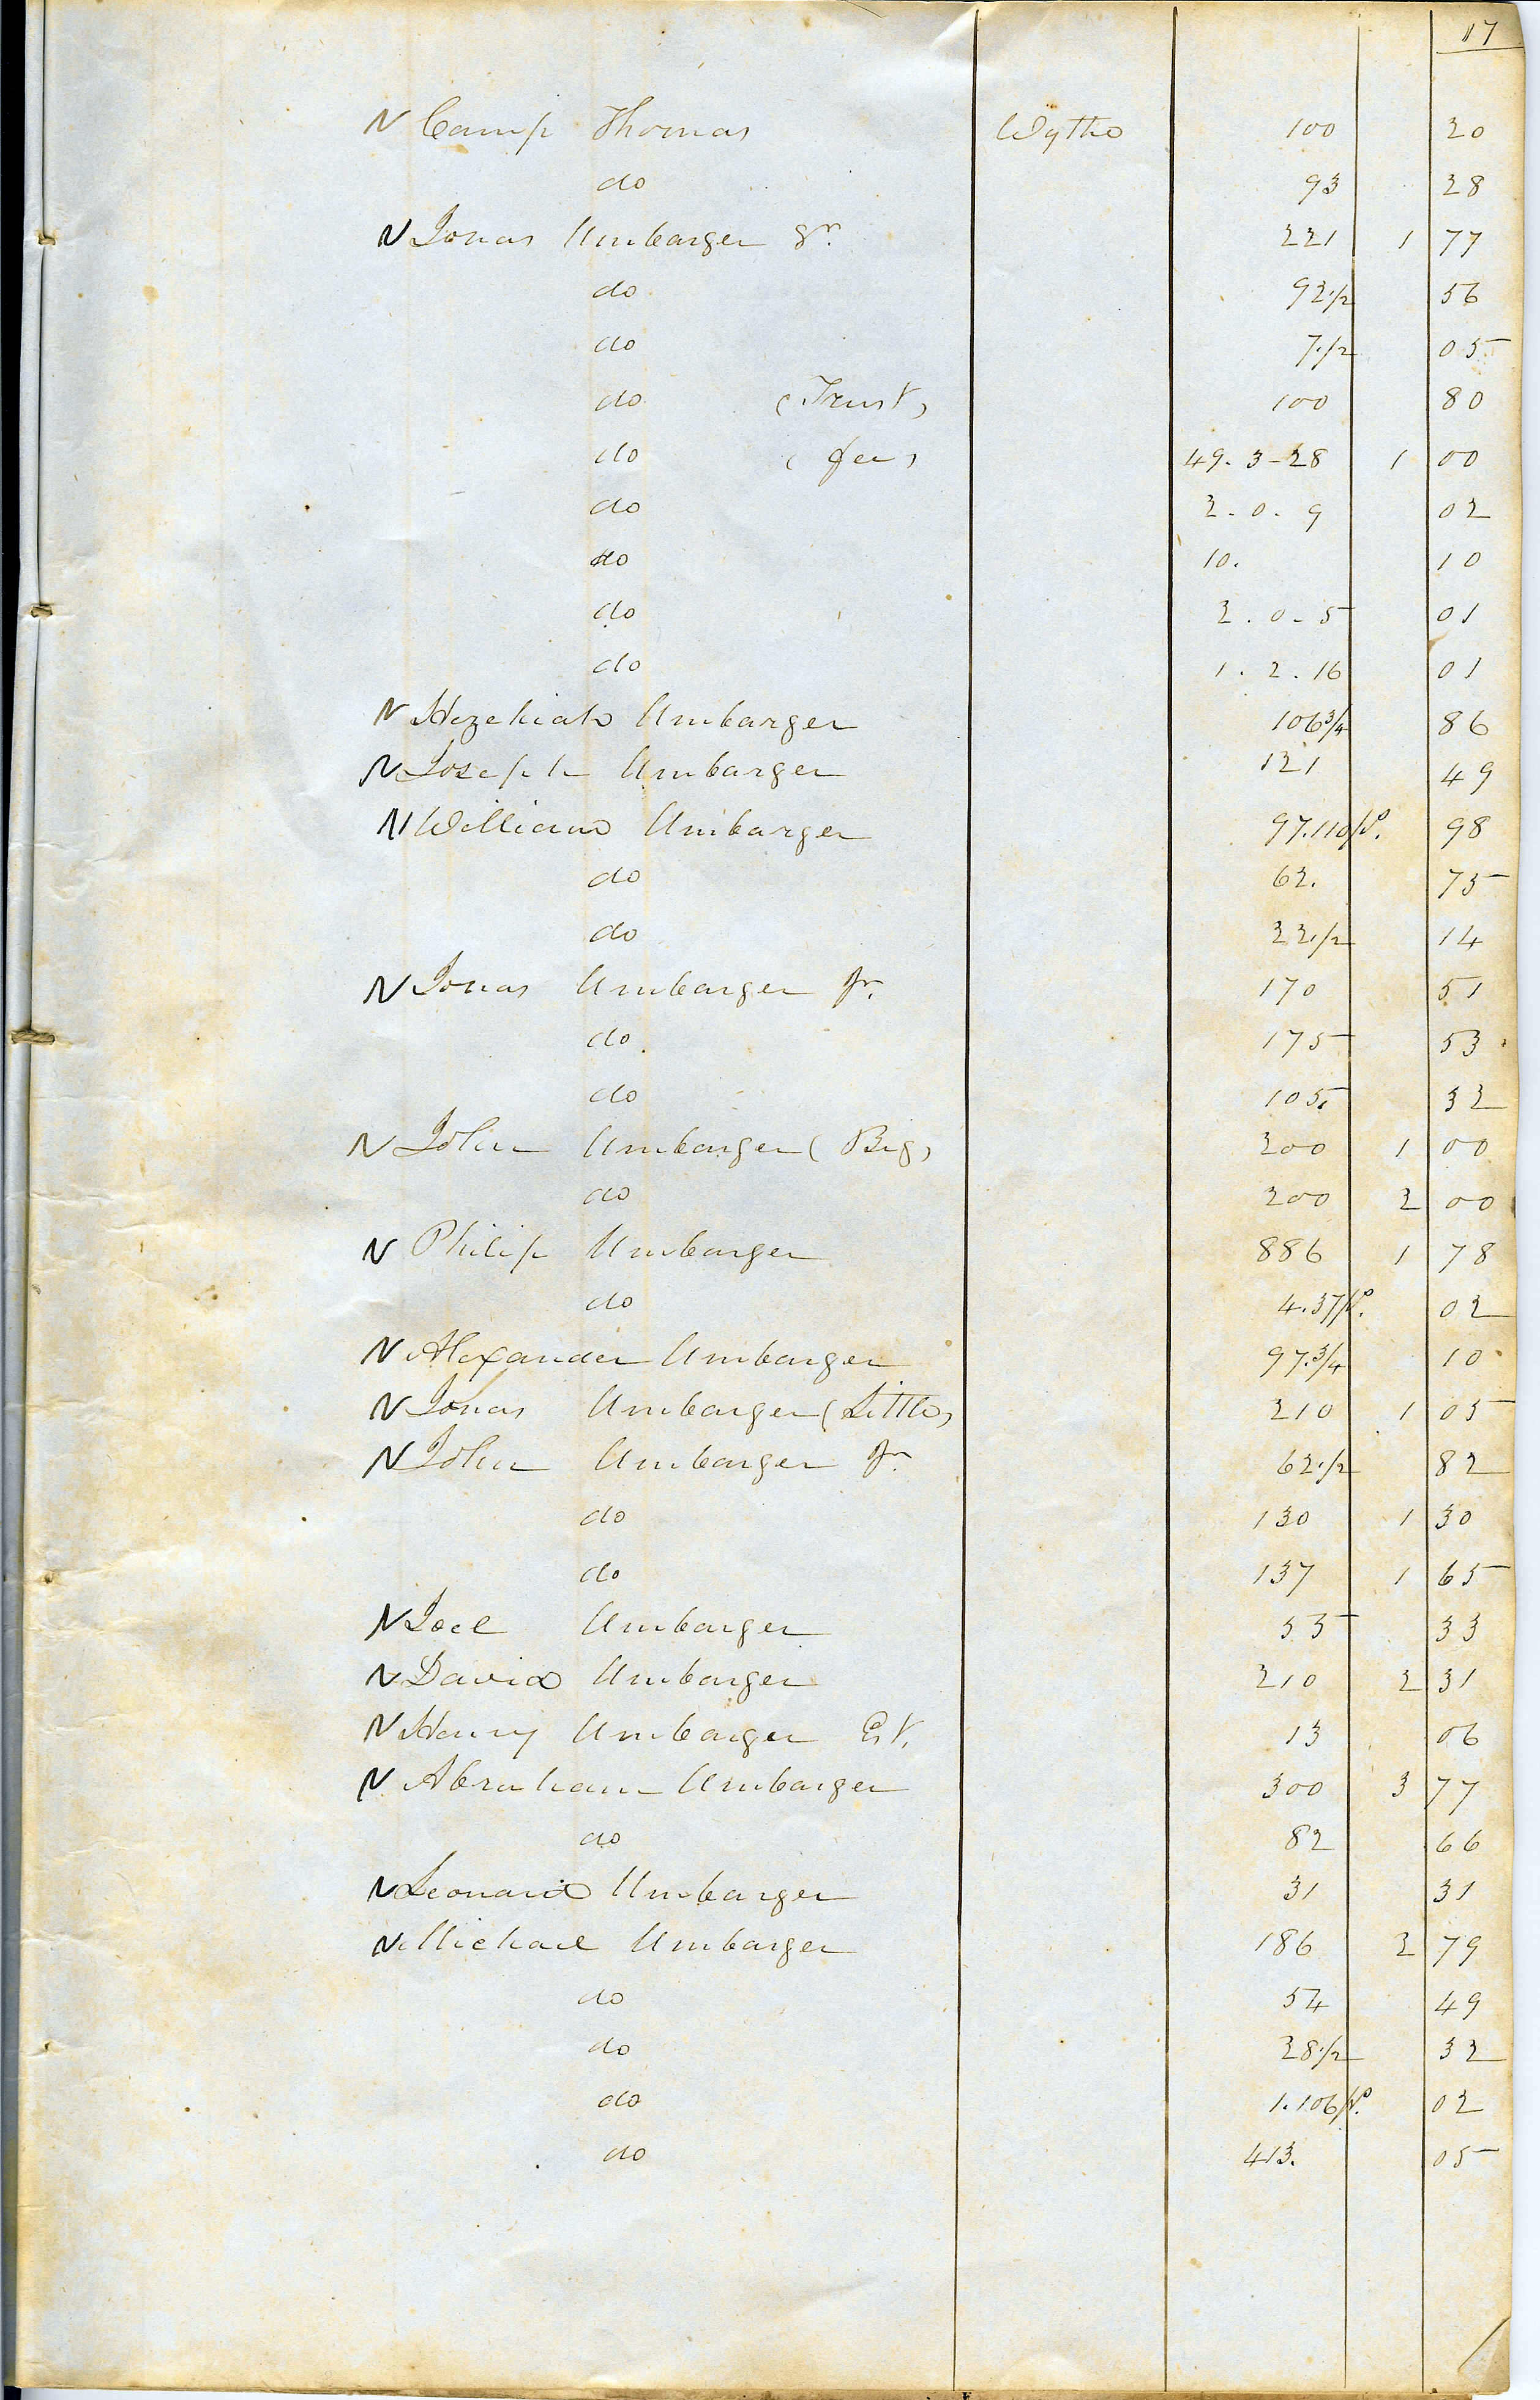 17
N Camp Thomas Wythe 100 20
do 93 28
N Jonas Umbarger Sr. 221 1 77
do 92 1/2 56
do 7 1/2 05
do (Trust) 100 80
do (fee) 49. 3 - 28 1 00
do 2 - 0 - 9 02
do 10. 10
do 2 . 0 - 5 01
do 1 . 2 . 16 01
N Hezekiah Umbarger 106 3/4 86
N Joseph Umbarger 121 49
N William Umbarger 97.110 p. 98
do 62. 75
do 22 1/2 14
N Jonas Umbarger Jr. 170 51
do 175 53
do 105. 32
N John Umbarger (Big) 200 1 00
do 200 2 00
N Philip Umbarger 886 1 78
do 4.37 p. 02
N Alexander Umbarger 97. 3/4 10
N Jonas Umbarger (Little) 210 1 05
N John Umbarger Jr. 62 1/2 82
do 130 1 30
do 137 1 65
N Joel Umbarger 55 33
N David Umbarger 210 2 31
N Henry Umbarger Est. 13 06
N Abraham Umbarger 300 3 77
do 82 66
N Leonard Umbarger 31 31
N Michael Umbarger 186 2 79
do 54 49
do 28 1/2 32
do 1.106 p. 02
do 413. 05